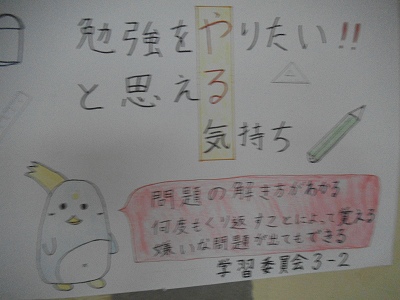 勉強をやりたい!!
と思える
気持ち
問題の解き方がわかる
何度もくり返すことによって覚える
嫌いな問題が出てもできる
学習委員会3-2